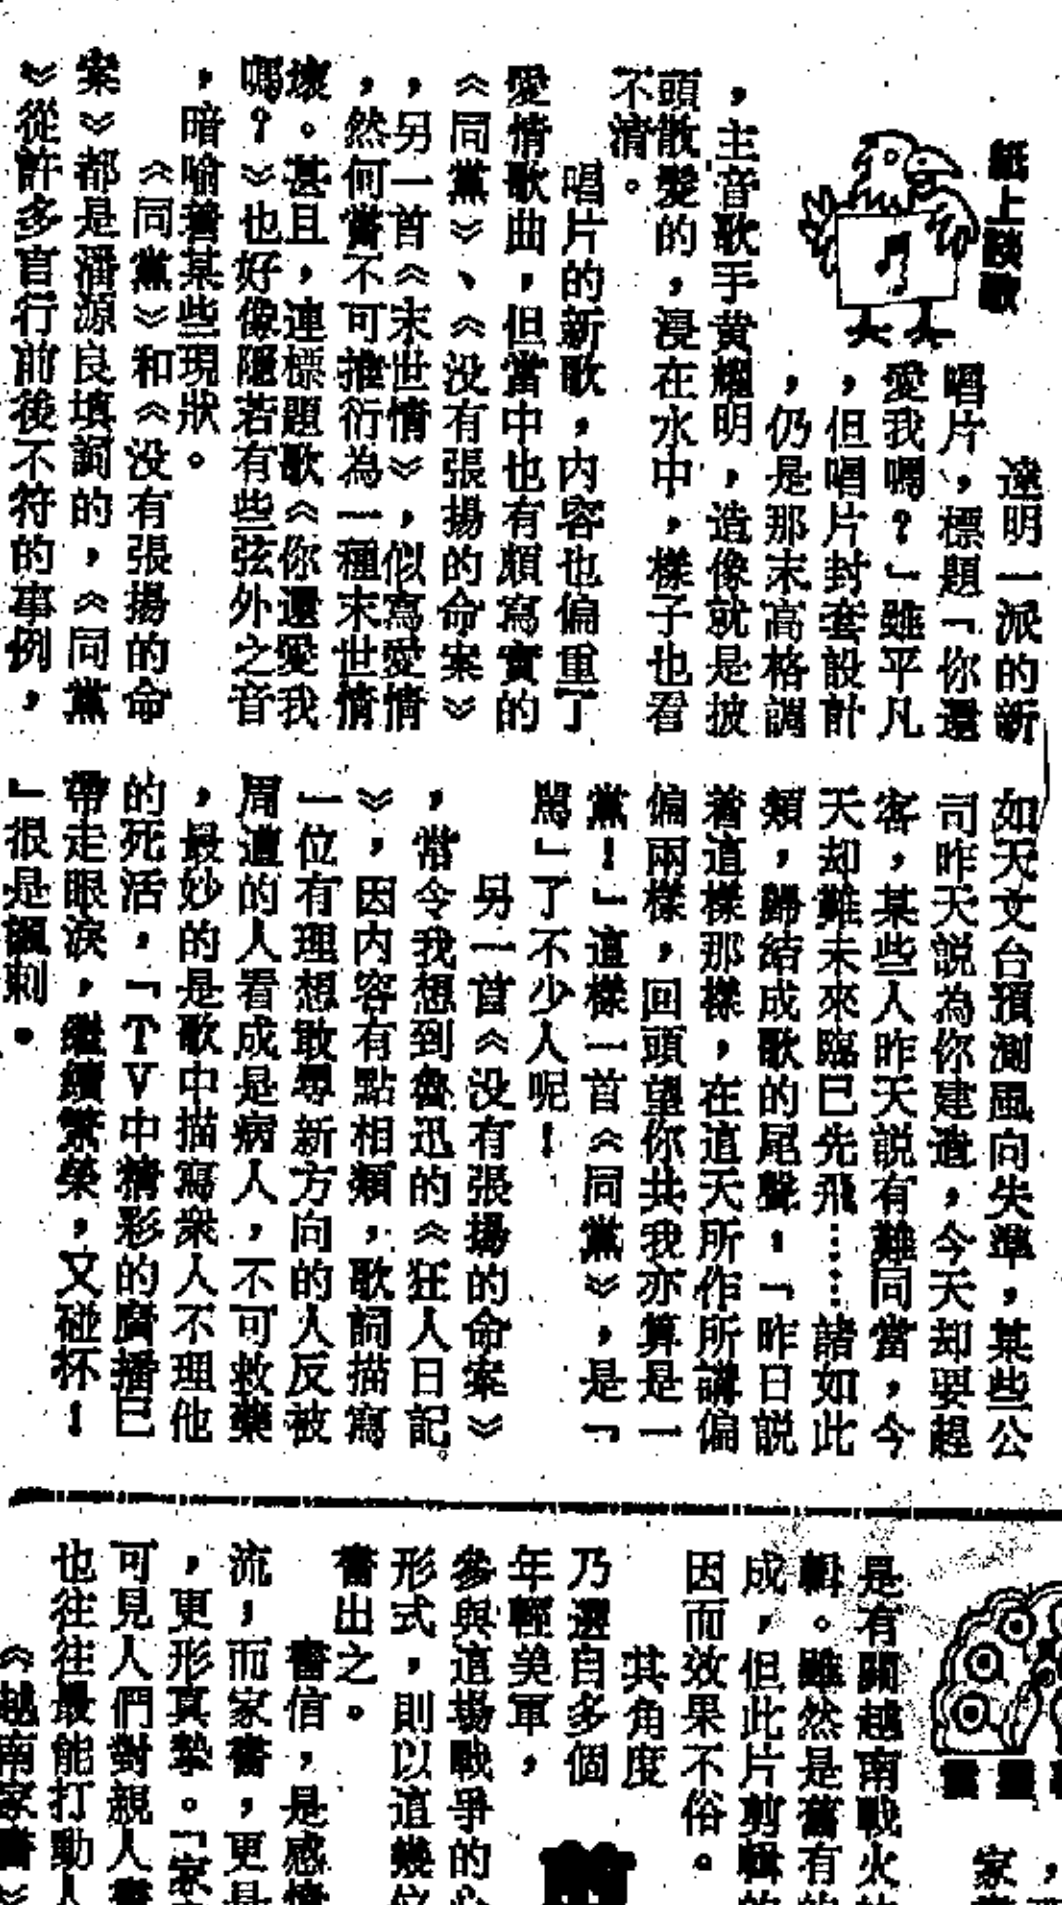 紙上談歌
達明一派的新
唱片，標題「你還
愛我嗎？」雖平凡
，但唱片封套設計
，仍是那末高格調
，主音歌手黄耀明，造像就是披
頭散髮的，浸在水中，樣子也看
不清。
唱片的新歌，内容也偏重了
愛情歌曲，但當中也有頗寫實的
《同黨》、《没有張揚的命案》
，另一首《末世情》，似寫愛情
，然何嘗不可推衍為一種末世情
懷。甚且，連標題歌《你還愛我
嗎？》也好像隱若有些弦外之音
，暗喻着某些現狀。
《同黨》和《没有張揚的命
案》都是潘源良填詞的，《同黨
》從許多言行前後不符的事例，
如天文台預測風向失準，某些公
司昨天説為你建造，今天却要趕
客，某些人昨天説有難同當，今
天却難未來臨已先飛……諸如此
類，歸結成歌的尾聲：「昨日説
着這樣那樣，在這天所作所講偏
偏兩樣，回頭望你共我亦算是一
黨！」這樣一首《同黨》，是「
駡」了不少人呢！
另一首《没有張揚的命案》
，常令我想到魯迅的《狂人日記
》，因内容有點相類，歌詞描寫
一位有理想敢尋新方向的人反被
周遭的人看成是病人，不可救藥
，最妙的是歌中描寫衆人不理他
的死活，「TV中精彩的廣播已
帶走眼淚，繼續繁榮，又碰杯！
」很是諷刺。
家
是有關越南戰火
輯。雖然是舊有的
成，但此片剪輯的
因而效果不俗。
其角度
乃選自多個
年輕美軍，
參與這場戰爭的心
形式，則以這幾位
書出之。
書信，是感情
流，而家書，更是
，更形真摯。「家
可見人們對親人書
也往往最能打動人
《越南家書》